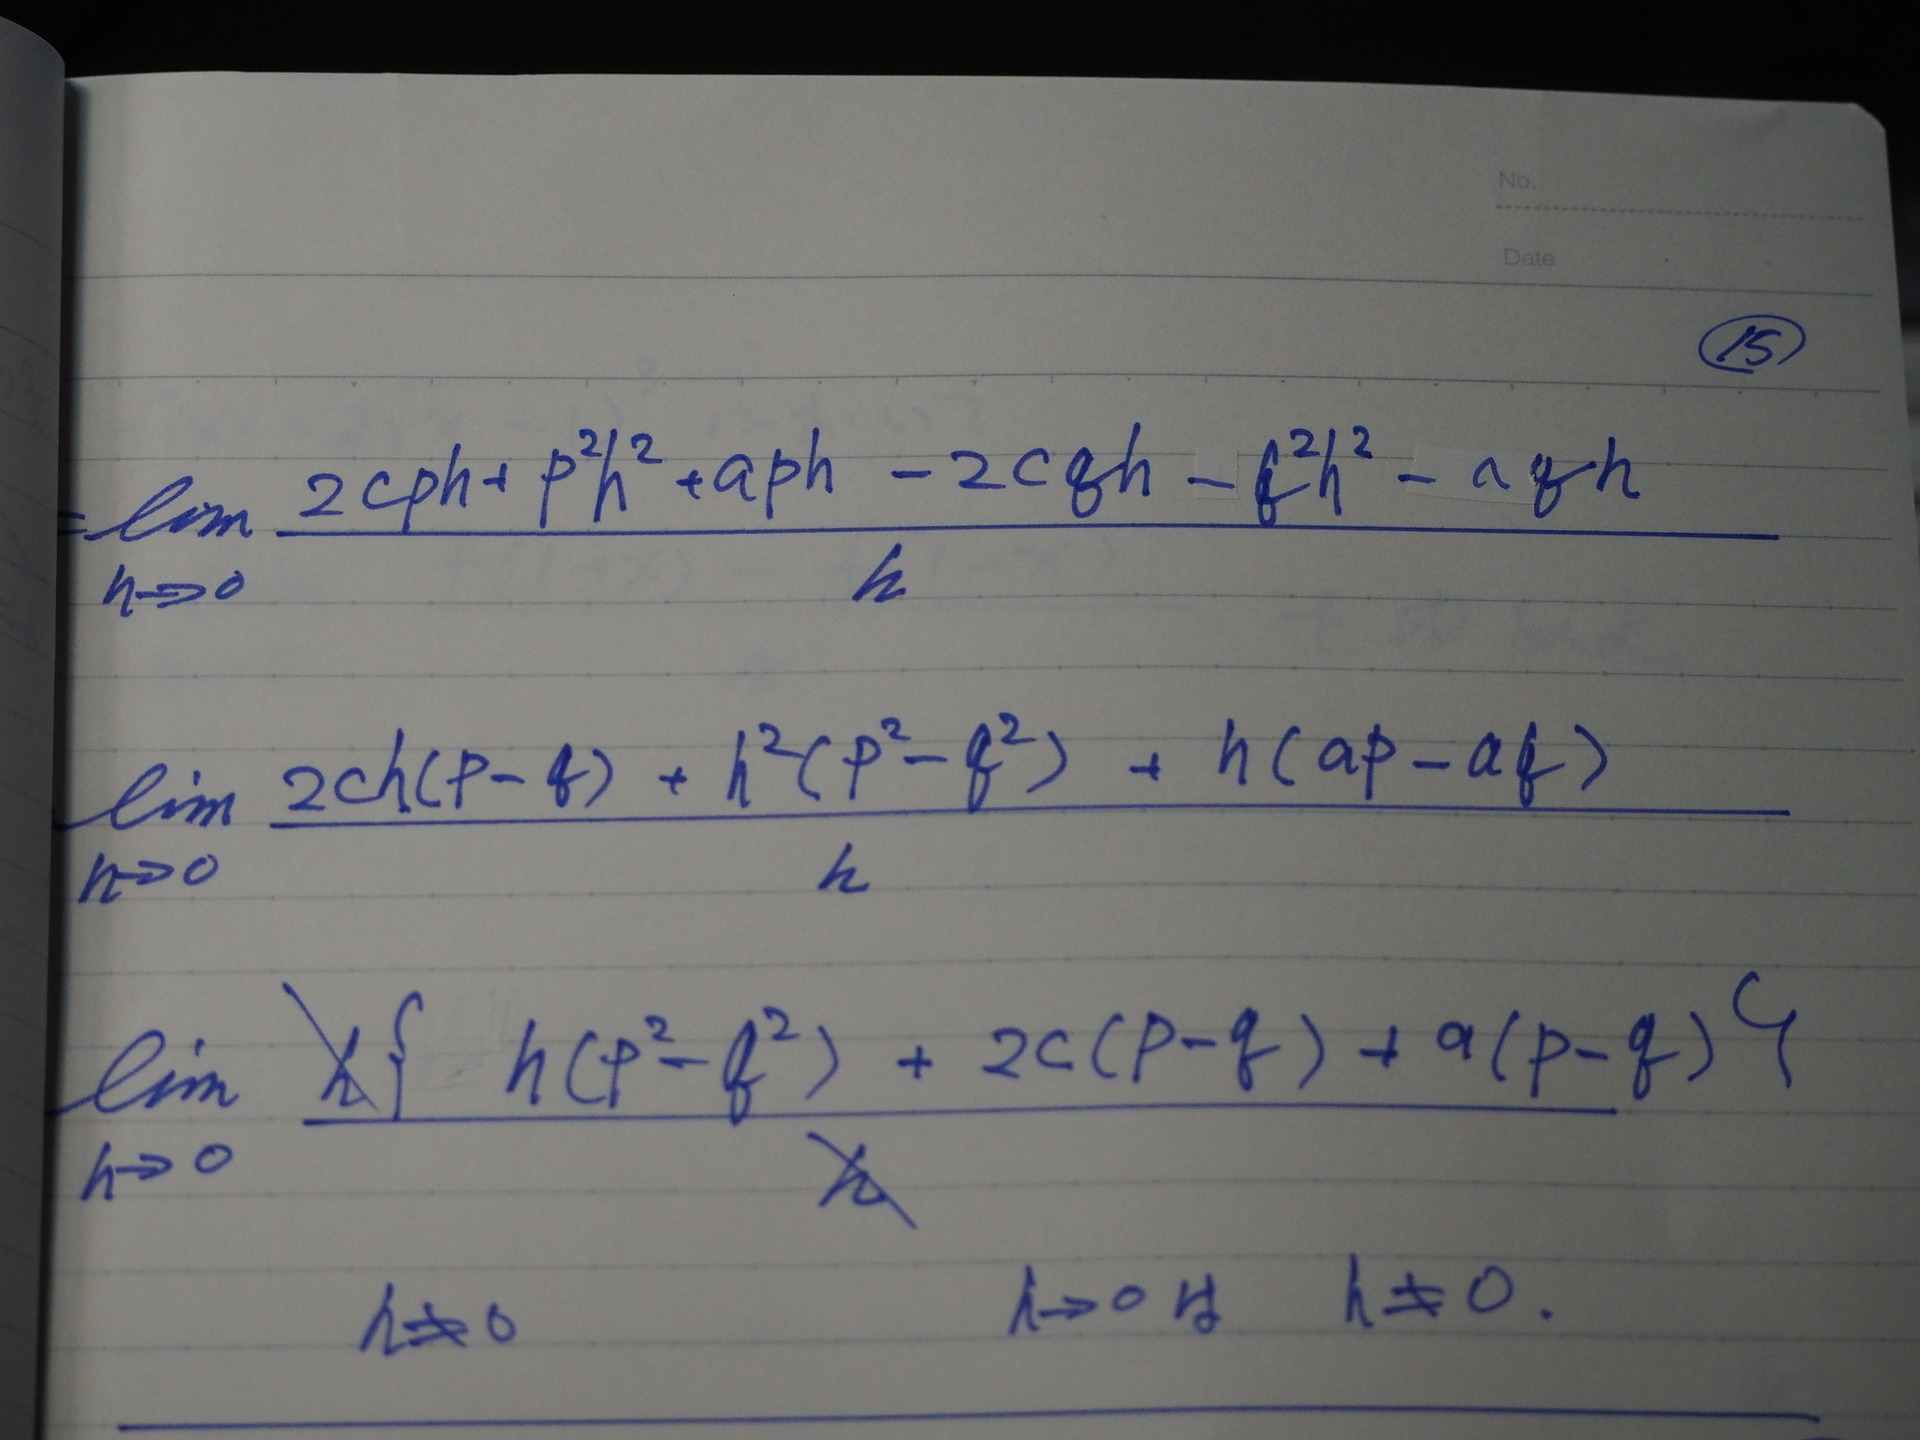 No.
Date
⑮
= lim_{h→0} (2cph + p²h² + aph − 2cqh − q²h² − aqh) / h
lim_{h→0} (2ch(p − q) + h²(p² − q²) + h(ap − aq)) / h
lim_{h→0} h{ h(p² − q²) + 2c(p − q) + a(p − q)} / h
h≠0 h→0は h≠0.